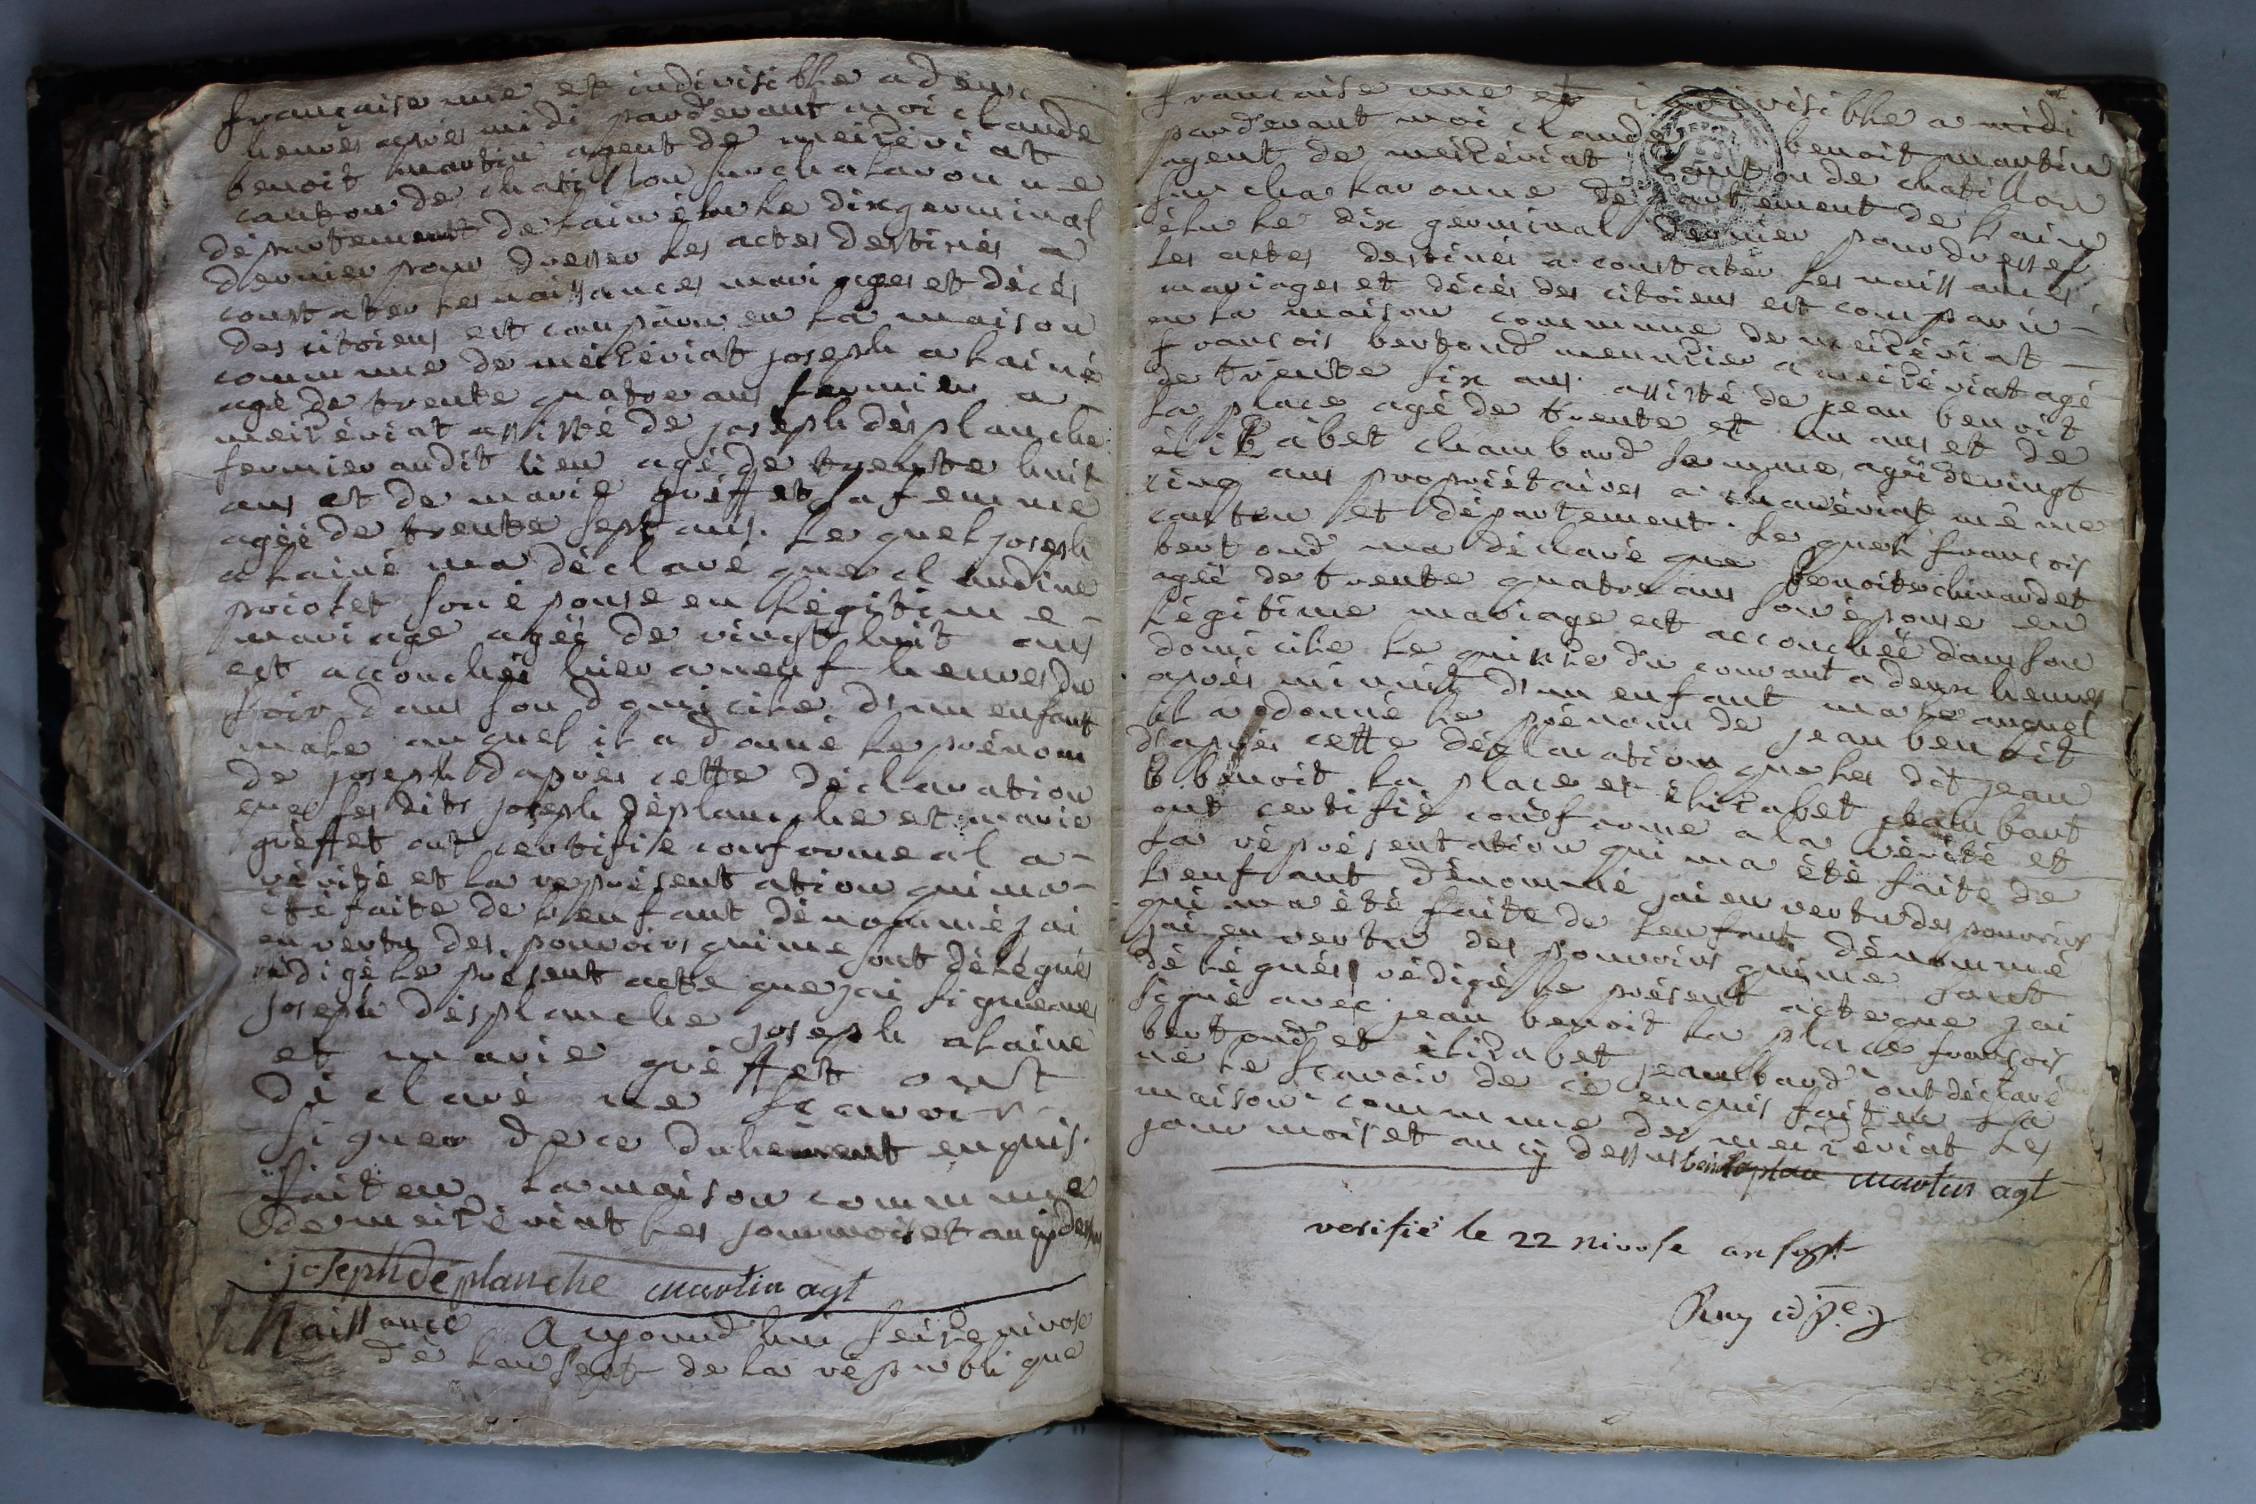 française une et indivisible a deux
heures après midi pardevant moi claude
benoit martin agent de meizériat
canton de chatillon sur chalaronne
département de lain élu le dix germinal
dernier pour dresser les actes destinés a
constater les naissances mariages et décés
des citoiens est comparu en la maison
commune de meizériat joseph alainé
agé de trente quatre ans fermier a
meizériat assisté de joseph désplanche
fermier audit lieu agé de trente huit
ans et de marie gréffet sa femme
agéé de trente sept ans. lequel joseph
alainé ma déclaré que claudine
priolet son épouse en légitime
mariage agéé de vingt huit ans
est accouchéé hier a neuf heures du
soir dans son domicile d'un enfant
male auquel il a donné le prénom
de joseph d'aprés cette déclaration
que les dits joseph déplanche et marie
gréffet ont certifié conforme a la
vérité et la représentation qui ma
été faite de l'enfant dénommé jai
en vertu des pouvoirs qui me sont délégués
rédigé le présent acte que jai signé avec
joseph désplanche joseph alainé
et marie gréffet ont
déclaré ne sçavoir
signer de ce duhement enquis.
fait en la maison commune
de meizériat les jour mois et an cy dessus
joseph déplanche martin agt
Naissance aujourd'hui seize nivose
dé lan sept de la république
française une et indivisible a midi
pardevant moi claude benoit martin
agent de meizériat canton de chatillon
sur chalaronne département de lain
élu le dix germinal dernier pour dresser
les actes destinés a constater les naissances
mariages et décés des citoiens est comparu
en la maison commune de meizériat
françois bertoud meunier a meizériat agé
de trente six ans assisté de jean benoit
la place agé de trente et un ans et de
élizabet chambard femme agéé de vingt
cinq ans propriétaires a chavériat même
canton et département. lequel françois
bertoud ma déclaré que benoite chinardet
agéé de trente quatre ans son épouse en
légitime mariage est accouchéé dans son
domicile le quinze du courant a deux heures
aprés minuit d'un enfant male auquel
il a donné le prénom de jean benoit
d'aprés cette déclaration que les dit jean
benoit la place et élizabet chambart
ont certifié conforme a la vérité et
la représentation qui ma été faite de
l'enfant dénommé jai en vertu des pouvoirs
qui ma été faite de lenfant dénommé
jai en vertu des pouvoirs qui me sont
délégués rédigé le présent acte que jai
signé avec jean benoit la place françois
bertoud et élizabet jeambard ont déclaré
ne le scavoir de ce enquis fait en la
maison commune de meizériat les
jour mois et an cy dessus benoit laplace martin agt
verifié le 22 nivose an sept